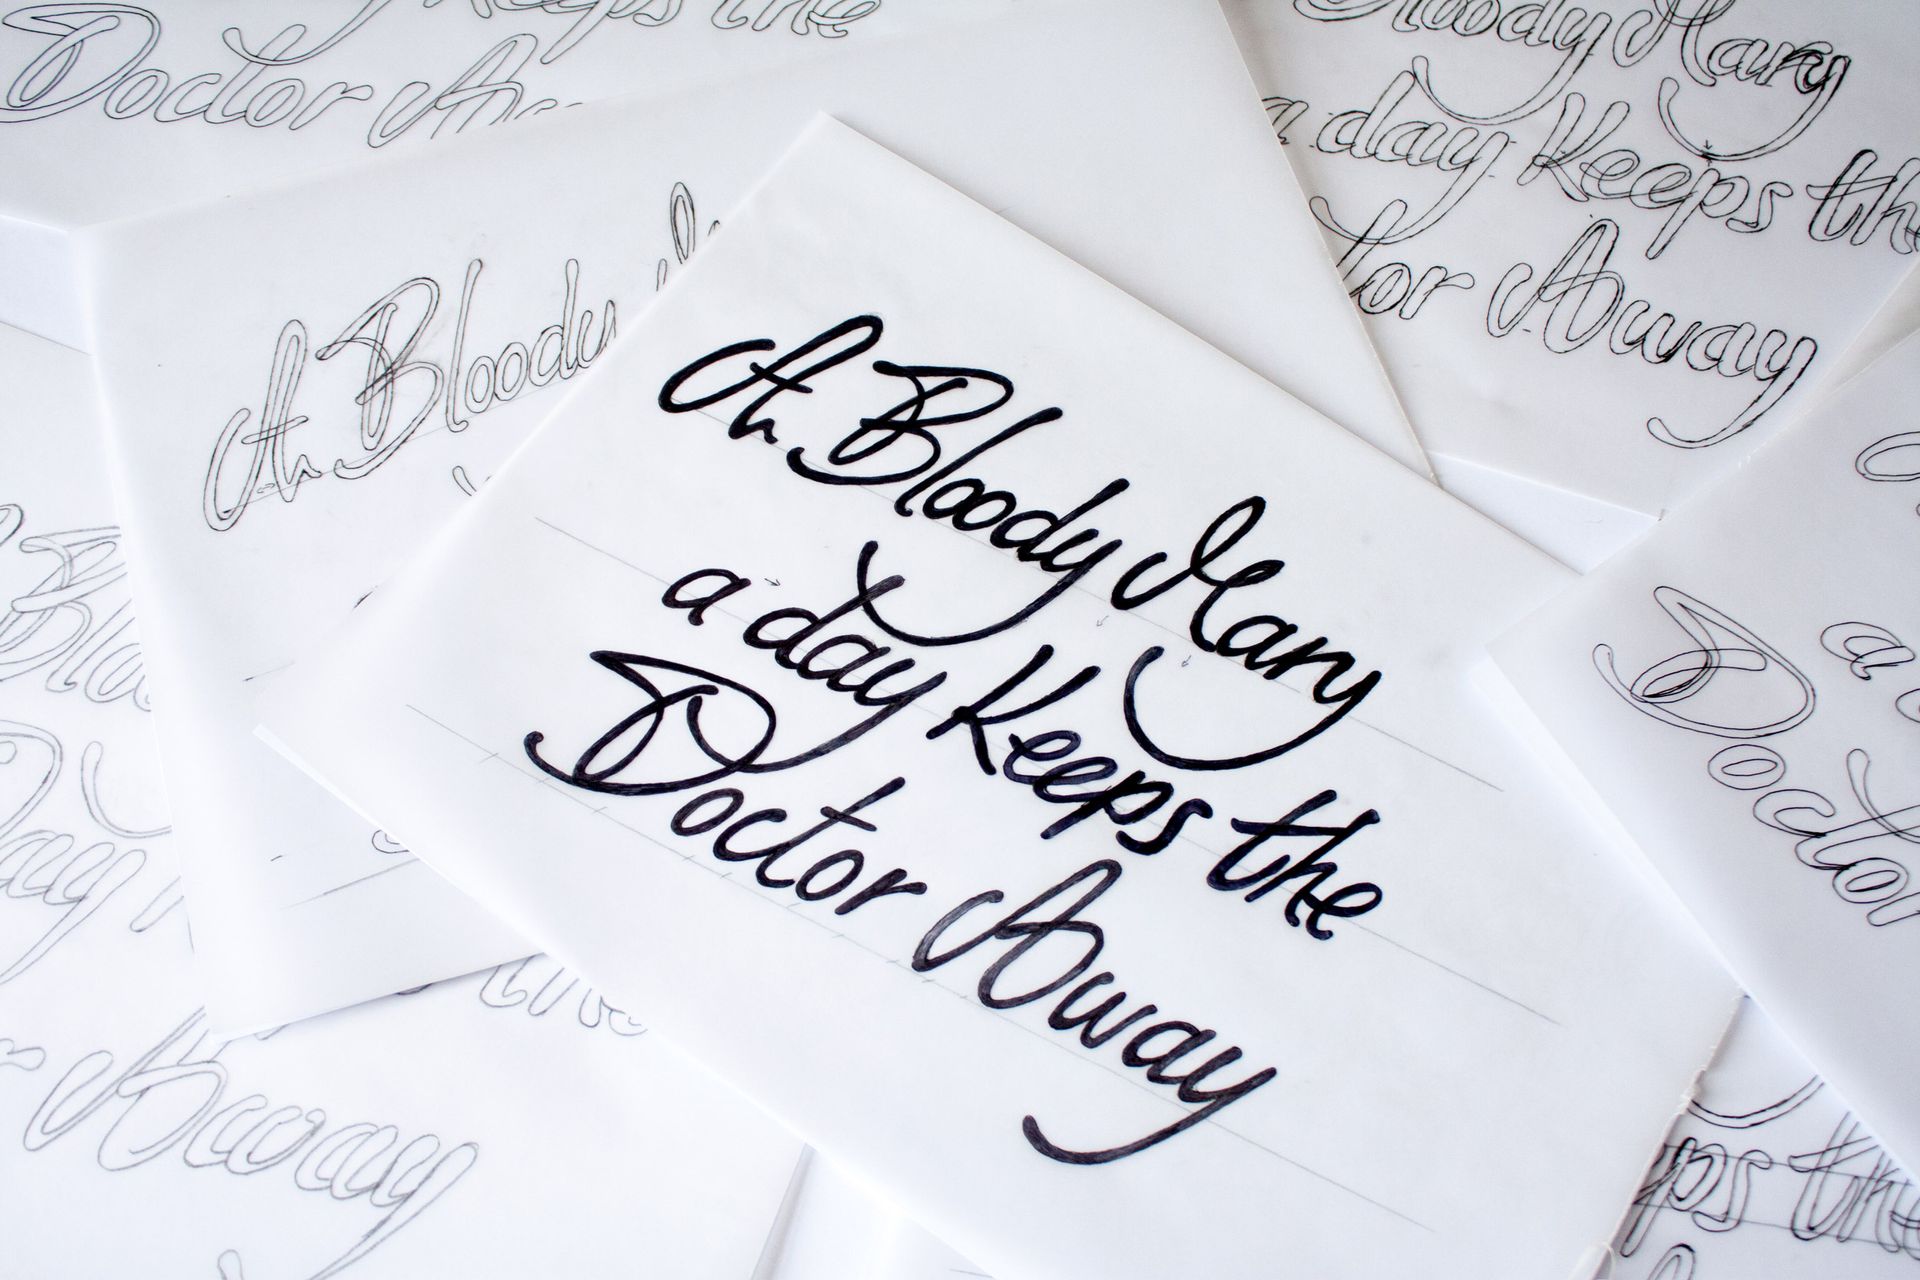 A Bloody Mary
a day Keeps the
Doctor Away
Keeps the
Doctor Aw
A Bloody
Bloody Mary
a day Keeps the
tor Away
a
Doctor
Bloo
Day
the
Away
ps the